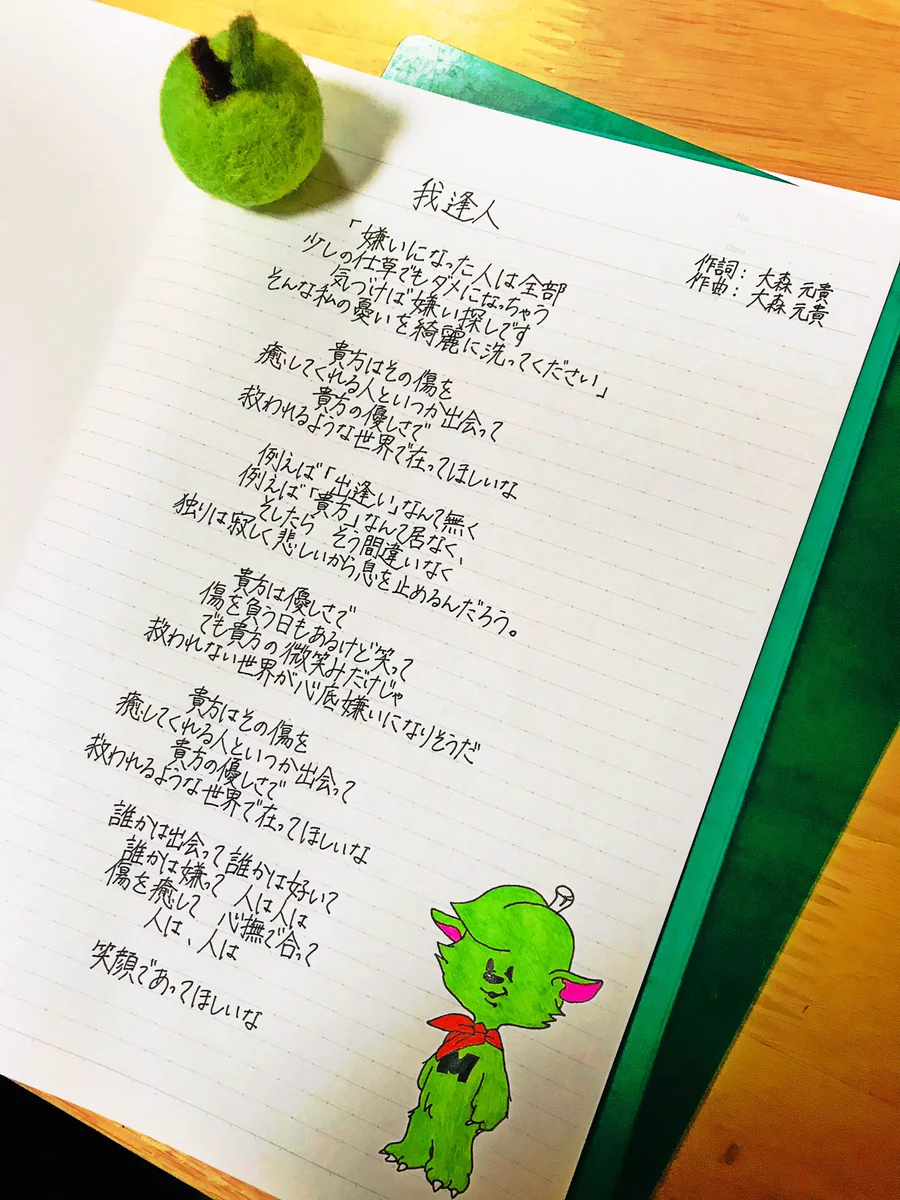 我逢人
作詞：大森元貴
作曲：大森元貴
「嫌いになった人は全部
少しの仕草でもダメになっちゃう
気づけば嫌い探しです
そんな私の憂いを綺麗に洗ってください」
貴方はその傷を
癒してくれる人といつか出会って
貴方の優しさで
救われるような世界で在ってほしいな
例えば「出逢い」なんて無く
例えば「貴方」なんて居なく、
そしたら　そう間違いなく
独りは寂しく悲しいから息を止めるんだろう。
貴方は優しさで
傷を負う日もあるけど笑って
でも貴方の微笑みだけじゃ
救われない世界が心底嫌いになりそうだ
貴方はその傷を
癒してくれる人といつか出会って
貴方の優しさで
救われるような世界で在ってほしいな
誰かは出会って 誰かは好いて
誰かは嫌って　人は人は
傷を癒して　心撫で合って
人は、人は
笑顔であってほしいな
No.
Date
M